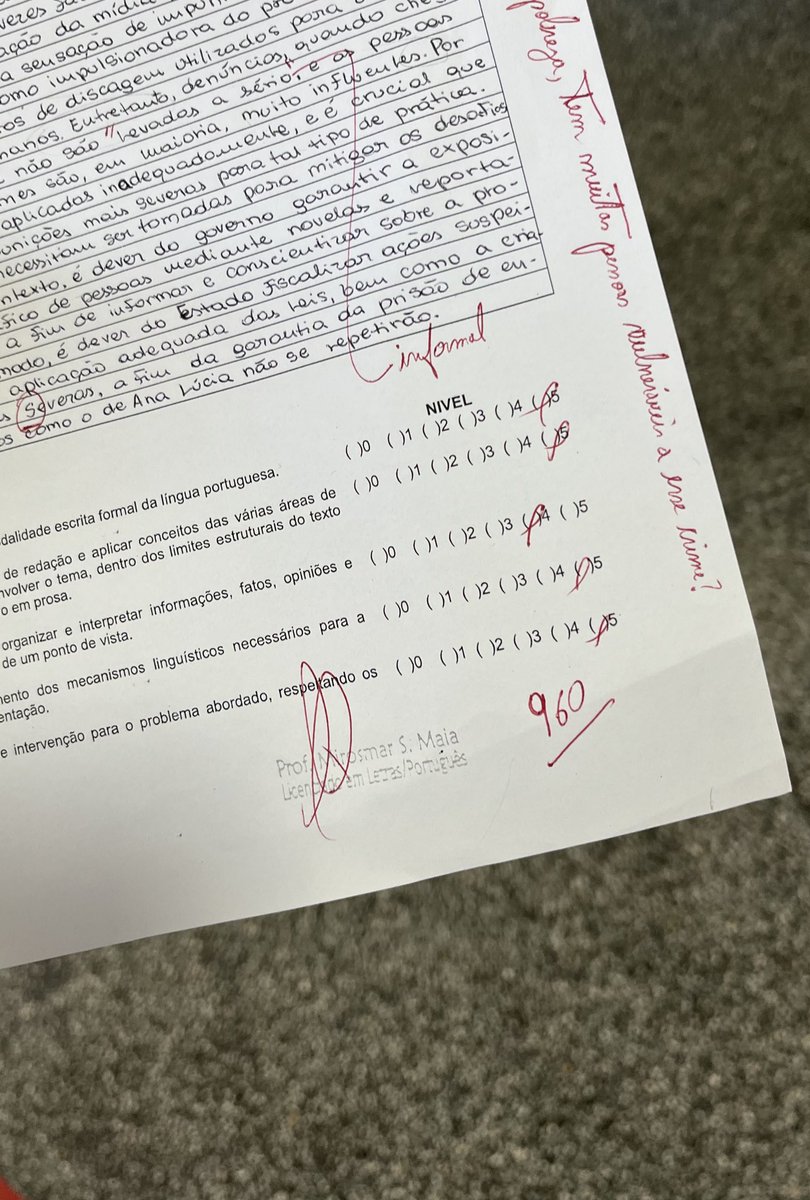 veres
ação da mídia
a sensação de impu
como impulsionadora do pr
os de discagem utilizados para
manos. Entretanto, denúncias, quando che
não são levados a sério, e as pessoas
mes são, em maioria, muito influentes. Por
aplicadas inadequadamente, e é crucial que
unições mais severas para tal tipo de prática.
necessitam ser tomadas para mitigar os desafios
ntexto, é dever do governo garantir a exposi-
fico de pessoas mediante novelas e reporta-
a fim de informar e conscientizar sobre a pro-
modo, é dever do Estado fiscalizar ações suspei-
aplicação adequada das leis, bem como a cria
s severas, a fim da garantia da prisão de en-
os como o de Ana Lúcia não se repetirão.
informal
pobreza, tem muitas pessoas vulneráveis a esse crime?
NIVEL
dalidade escrita formal da língua portuguesa. ( )0 ( )1 ( )2 ( )3 ( )4 ( )5
de redação e aplicar conceitos das várias áreas de ( )0 ( )1 ( )2 ( )3 ( )4 ( )5
nvolver o tema, dentro dos limites estruturais do texto
o em prosa.
organizar e interpretar informações, fatos, opiniões e ( )0 ( )1 ( )2 ( )3 ( )4 ( )5
de um ponto de vista.
mento dos mecanismos linguísticos necessários para a ( )0 ( )1 ( )2 ( )3 ( )4 ( )5
entação.
e intervenção para o problema abordado, respeitando os ( )0 ( )1 ( )2 ( )3 ( )4 ( )5
960
Prof. Mirosmar S. Maia
Licenciado em Letras/Português